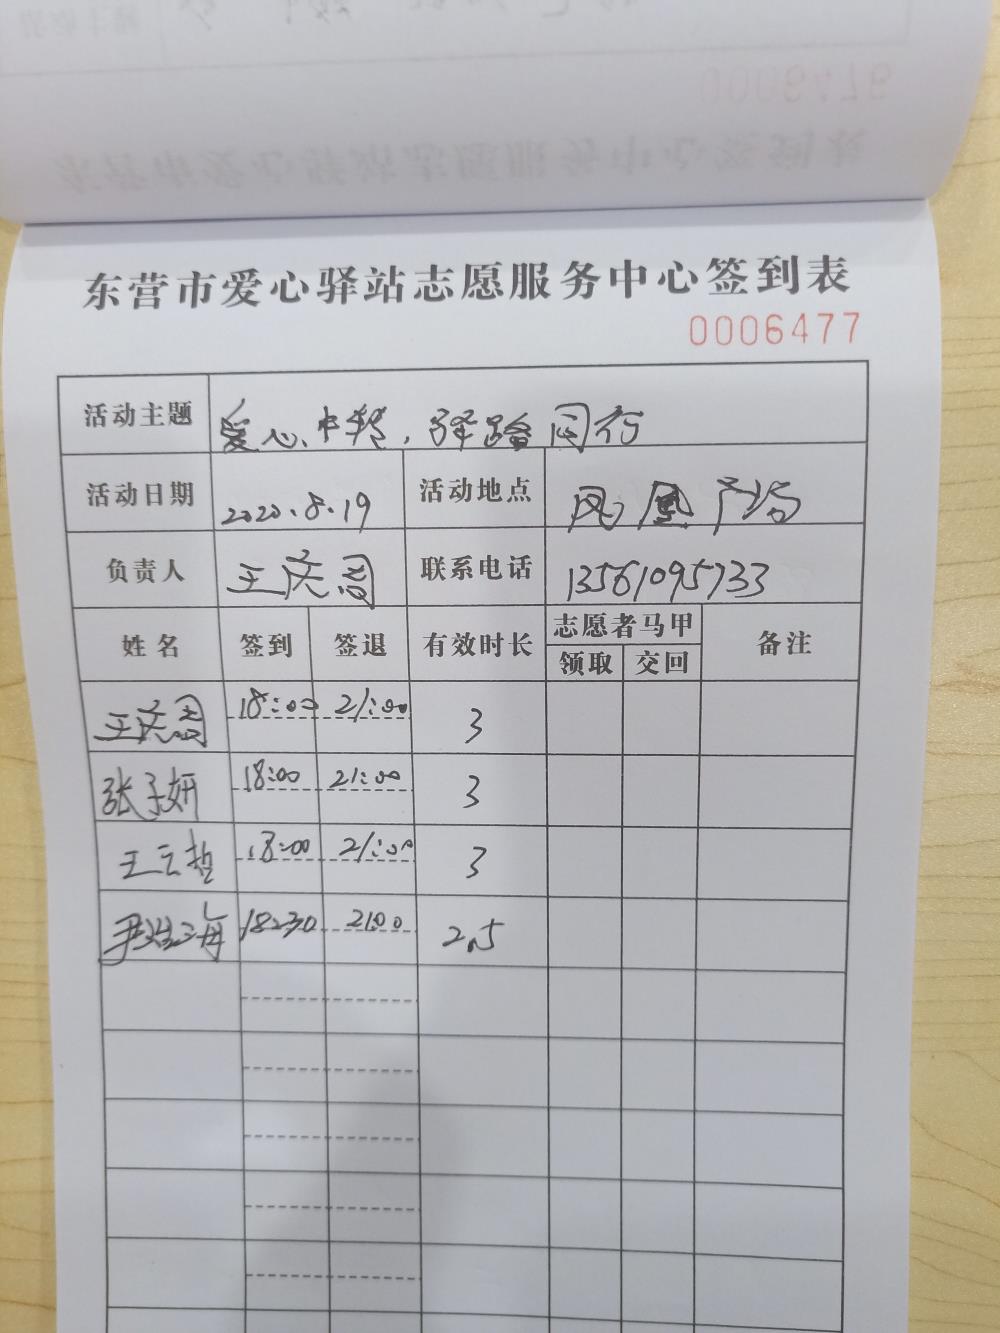 东营市爱心驿站志愿服务中心签到表
0006477
活动主题 爱心中转，驿路同行
活动日期 2020.8.19 活动地点 凤凰广场
负责人 王庆国 联系电话 13561095733
姓名 签到 签退 有效时长 志愿者马甲 备注
领取 交回
王庆国 18:00 21:00 3
张子妍 18:00 21:00 3
王云哲 18:00 21:00 3
尹 海 18:30 21:00 2.5